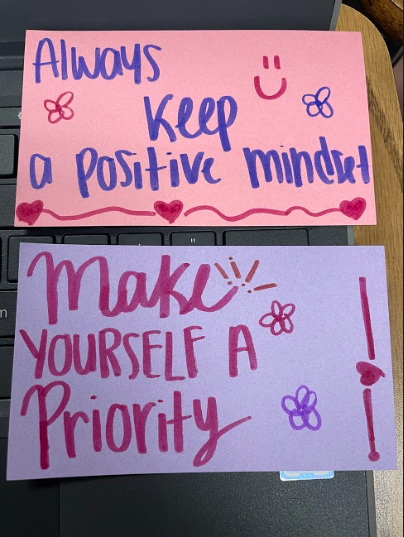 Always
Keep
a positive mindset
Make
YOURSELF A
Priority